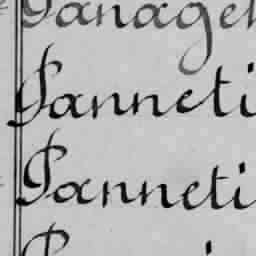 Panagel
Panneti
Panneti